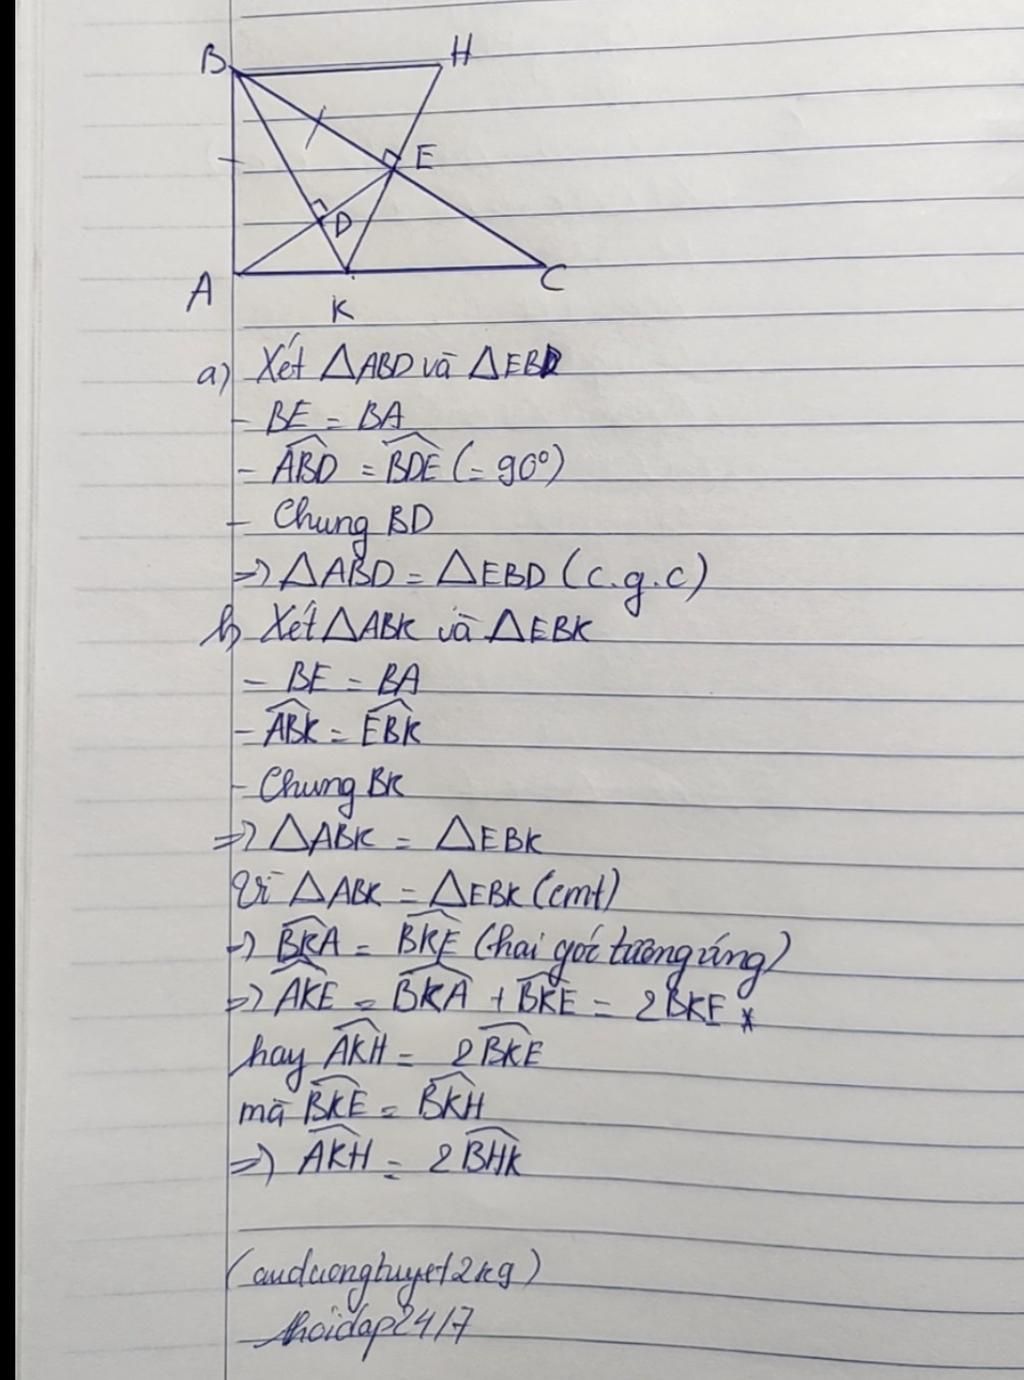 B H
E
D
A K C
a) Xét △ABD và △EBD
- BE = BA
- ABD = BDE (= 90°)
- Chung BD
=> △ABD = △EBD (c.g.c)
b) Xét △ABK và △EBK
- BE = BA
- ABK = EBK
- Chung BK
=> △ABK = △EBK
Vì △ABK = △EBK (cmt)
=> BKA = BKE (hai góc tương ứng)
=> AKE = BKA + BKE = 2BKE *
hay AKH = 2BKE
mà BKE = BKH
=> AKH = 2BHK
(auduongtuyet2kg)
hoidap24/7